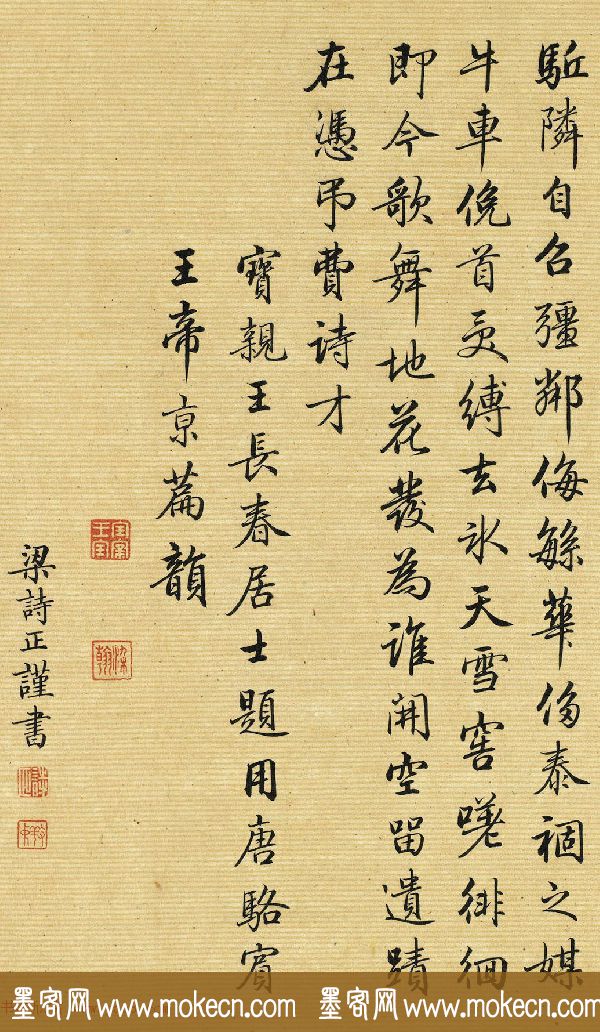 駈隣自召彊鄰侮繇華侈泰禍之媒
牛車俛首受縛去氷天雪窖嘆徘徊
即今歌舞地花發為誰開空留遺蹟
在憑弔費詩才
寶親王長春居士題用唐駱賓
王帝京篇韻
梁詩正謹書
墨客网 www.mokecn.com 墨客网 www.mokecn.com